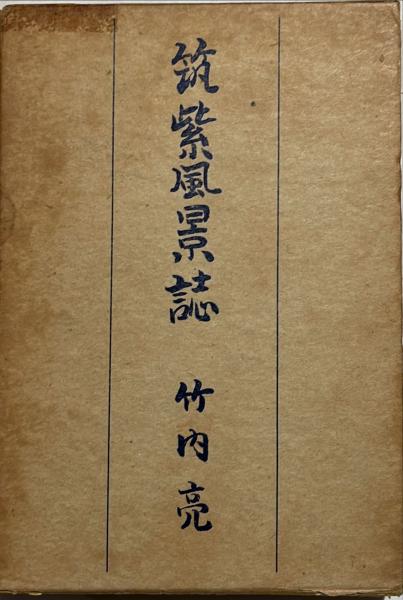 筑紫風景誌 竹内亮